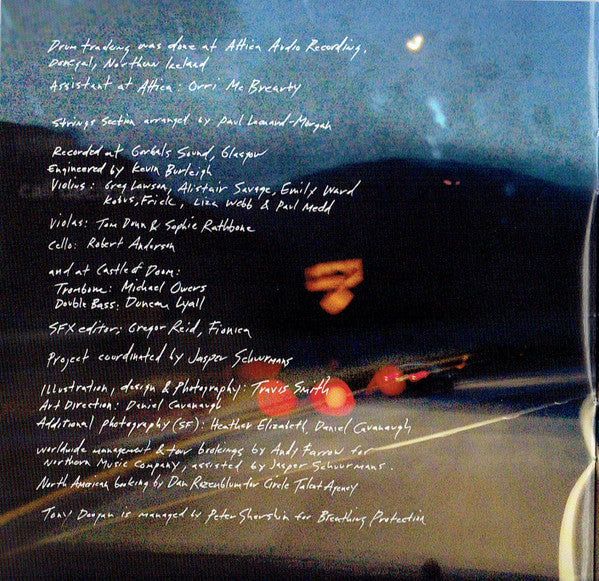 Drum tracking was done at Attica Audio Recording,
Donegal, Northern Ireland
Assistant at Attica: Orri McBrearty
Strings section arranged by Paul Leonard-Morgan
Recorded at Gorbals Sound, Glasgow
Engineered by Kevin Burleigh
Violins: Greg Lawson, Alistair Savage, Emily Ward
Kobus, Frick, Liza Webb & Paul Medd
Violas: Tom Dunn & Sophie Rathbone
Cello: Robert Anderson
and at Castle of Doom:
Trombone: Michael Owers
Double Bass: Duncan Lyall
SFX editor: Gregor Reid, Fionica
Project coordinated by Jasper Schuurmans
Illustration, design & Photography: Travis Smith
Art Direction: Daniel Cavanaugh
Additional photography (SF): Heather Elizabeth, Daniel Cavanaugh
Worldwide management & tour bookings by Andy Farrow for
Northern Music Company, assisted by Jasper Schuurmans.
North American booking by Dan Rozenblum for Circle Talent Agency
Tony Doogan is managed by Peter Shershin for Breathing Protection